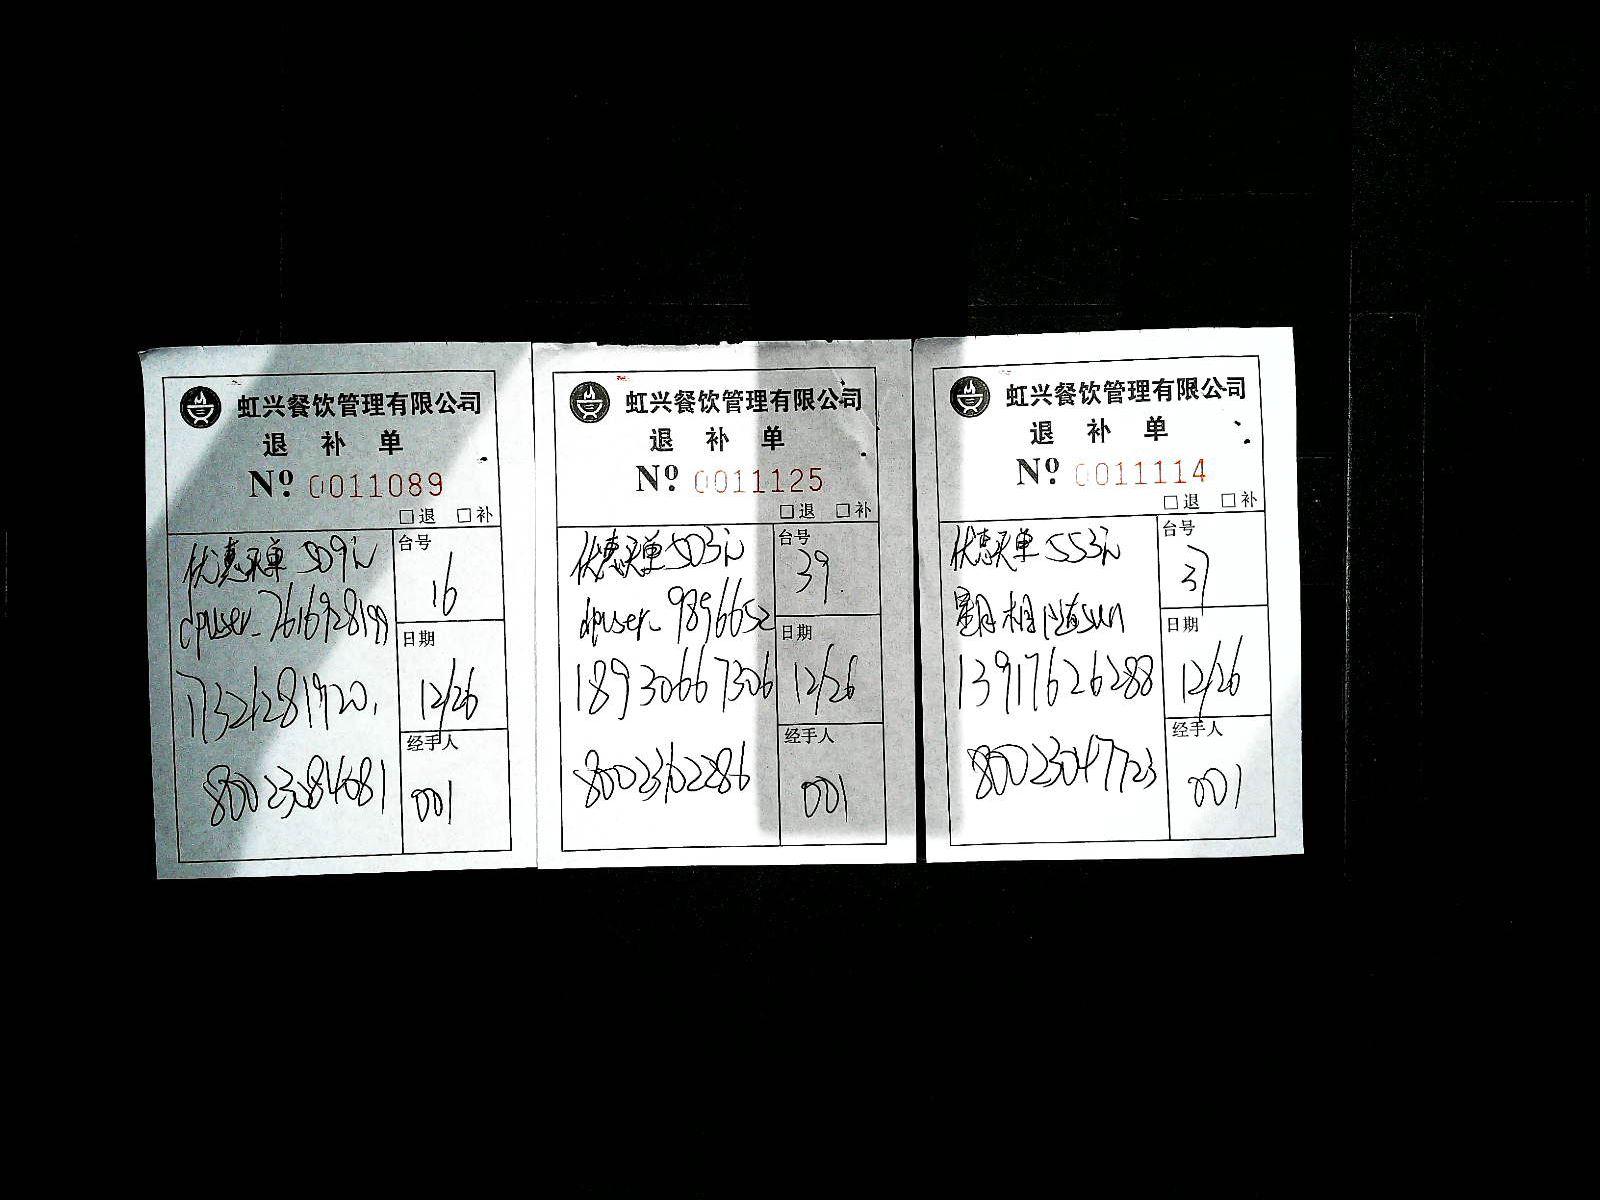 虹兴餐饮管理有限公司
退 补 单
Nº 0011089
□退 □补
优惠买单 509元
dpuser_7616928199
台号
16
17321281920.
日期
12/26
8002384681
经手人
001
虹兴餐饮管理有限公司
退 补 单
Nº 0011125
□退 □补
优惠买单 503元
dpuser_9896652
台号
39
18930667306
日期
12/26
80023602286
经手人
001
虹兴餐饮管理有限公司
退 补 单
Nº 0011114
□退 □补
优惠买单 553元
星月相随sun
台号
37
13917626288
日期
12/26
80023047723
经手人
001